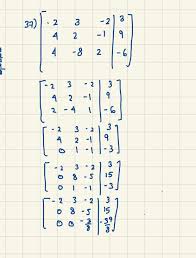 37) -2 3 -2 | 3
4 2 -1 | 9
4 -8 2 | -6
-2 3 -2 | 3
4 2 -1 | 9
2 -4 1 | -6
-2 3 -2 | 3
4 2 -1 | 9
0 1 -1 | -3
-2 3 -2 | 3
0 8 -5 | 15
0 1 -1 | -3
-2 3 -2 | 3
0 8 -5 | 15
0 0 -3/8 | -39/8